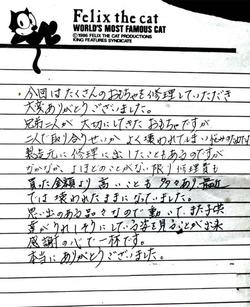 Felix the cat
WORLD'S MOST FAMOUS CAT
©1986 FELIX THE CAT PRODUCTIONS
KING FEATURES SYNDICATE
今回はたくさんのおもちゃを修理していただき
大変ありがとうございました。
兄弟二人が大切にしてきたおもちゃですが
二人で取り合うせいか よく壊われてしまい
製造元に修理に出したこともあるのですが
なかなか、よほどのことがない限り修理費も
買った金額より高いことも多々あり 最近
では壊われたままになっていました。
思い出のある品々なので動いて、また子供
達がうれしそうにしている姿を見ることが出来
感謝の心で一杯です。
本当にありがとうございました。